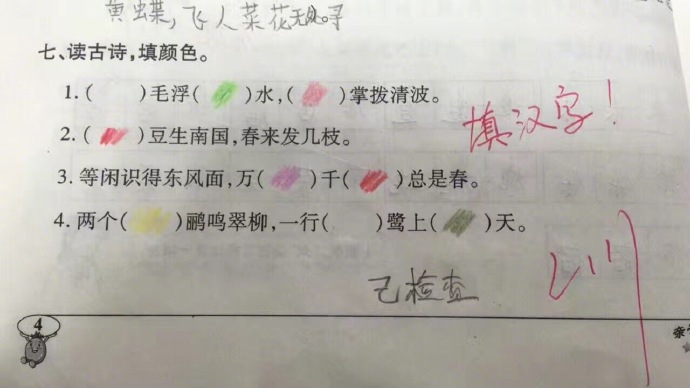 黄蝶,飞入菜花无处寻
七、读古诗,填颜色。
1.( )毛浮( )水,( )掌拨清波。
填汉字!
2.( )豆生南国,春来发几枝。
3.等闲识得东风面,万( )千( )总是春。
4.两个( )鹂鸣翠柳,一行( )鹭上( )天。
已检查
4